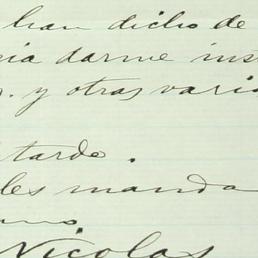 han dicho de
cia darme ins
y otras vari
tarde.
les manda
Nicolas